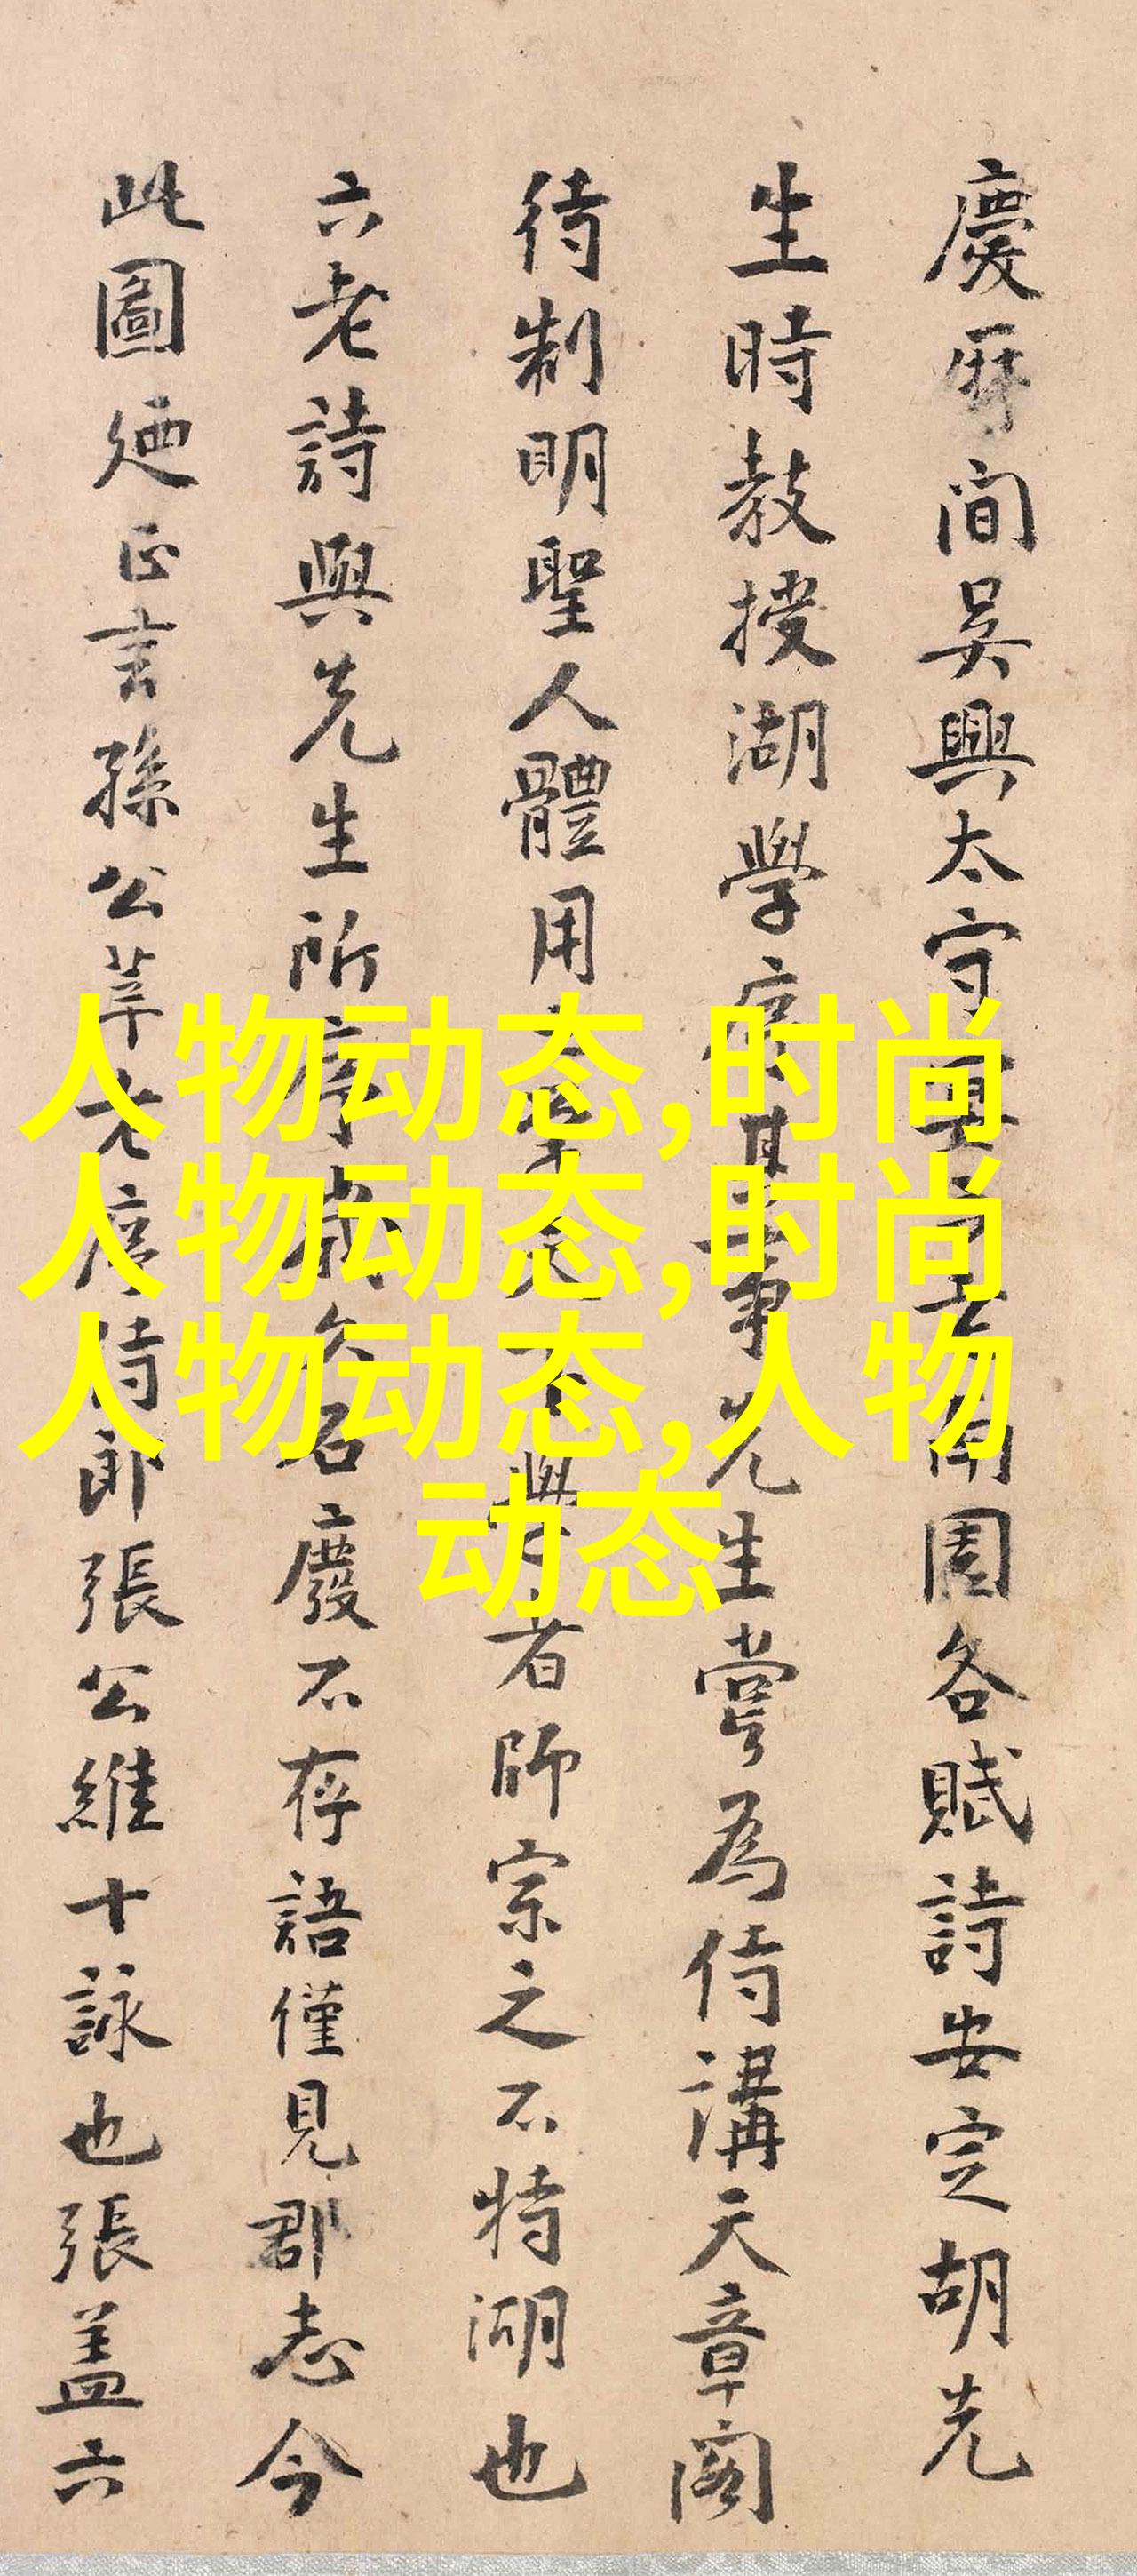 慶曆間吳興太守
園各賦詩安定胡先
生時教授湖學序其事先生嘗為侍講天章閣
待制明聖人體用
者師宗之不特湖也
六老詩與先生所序歲久石廢不存語僅見郡志今
此圖廼正言孫公莘老序侍郎張公維十詠也張蓋六
人物动态,时尚
人物动态,时尚
人物动态,人物
动态